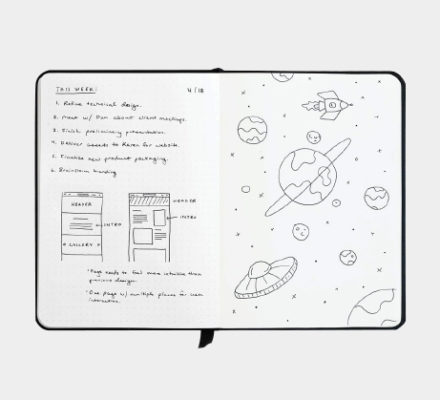 THIS WEEK: 4/18
1. Refine technical design.
2. Meet w/ Dan about client meetings.
3. Finish preliminary presentation.
4. Deliver assets to Karen for website.
5. Finalize new product packaging.
6. Brainstorm branding
HEADER
INTRO
GALLERY
HEADER
INTRO
*Page needs to feel more intuitive than
previous design.
*One page w/ multiple places for user
interaction.